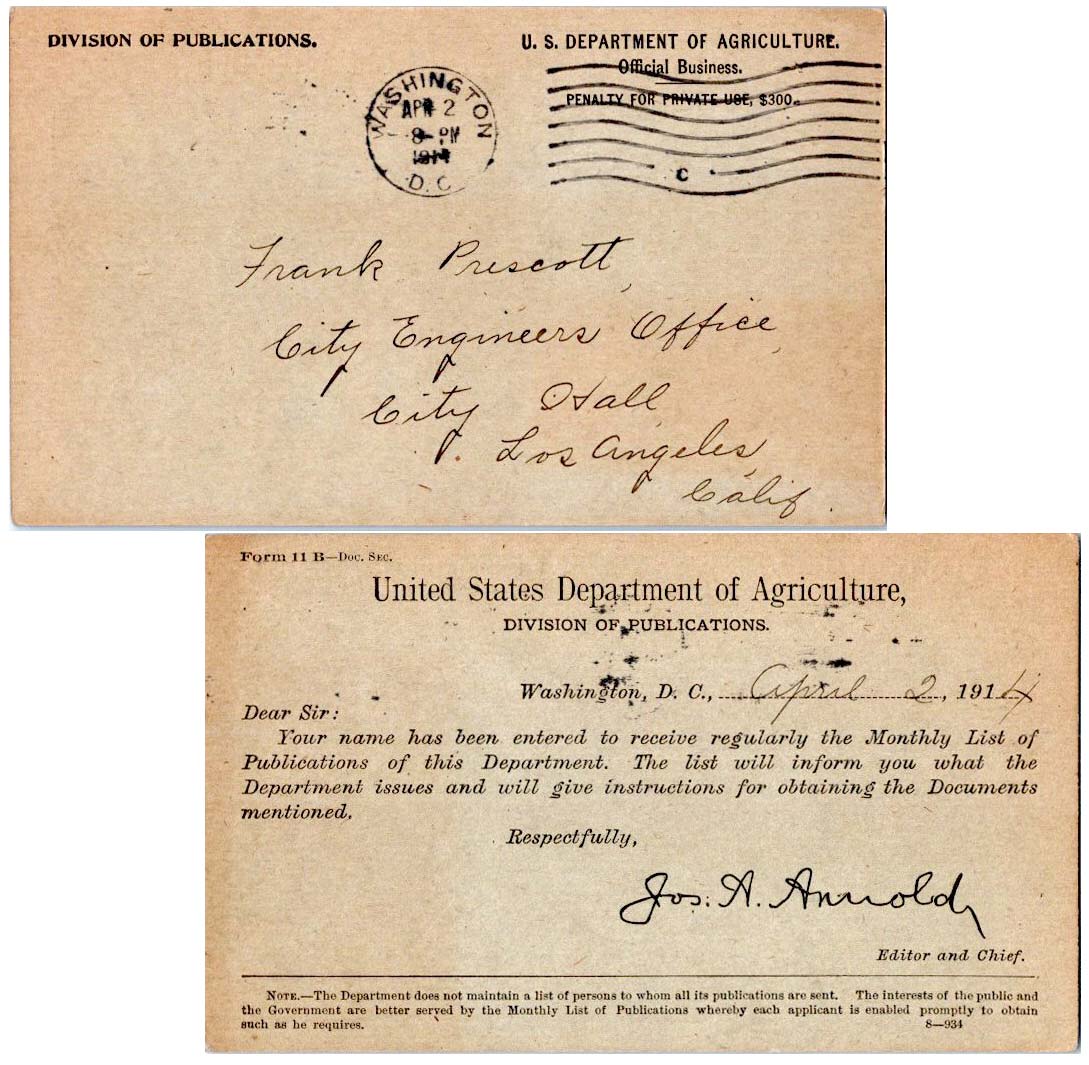 DIVISION OF PUBLICATIONS.
U. S. DEPARTMENT OF AGRICULTURE.
Official Business.
PENALTY FOR PRIVATE USE, $300.
WASHINGTON
APR 2
8-PM
1914
D.C.
C
Frank Prescott,
City Engineers Office,
City Hall
Los Angeles,
Calif.
Form 11 B—Doc. Sec.
United States Department of Agriculture,
DIVISION OF PUBLICATIONS.
Washington, D. C., April 2, 1914
Dear Sir:
Your name has been entered to receive regularly the Monthly List of
Publications of this Department. The list will inform you what the
Department issues and will give instructions for obtaining the Documents
mentioned.
Respectfully,
Jos. A. Arnold,
Editor and Chief.
NOTE.—The Department does not maintain a list of persons to whom all its publications are sent. The interests of the public and
the Government are better served by the Monthly List of Publications whereby each applicant is enabled promptly to obtain
such as he requires. 8—934